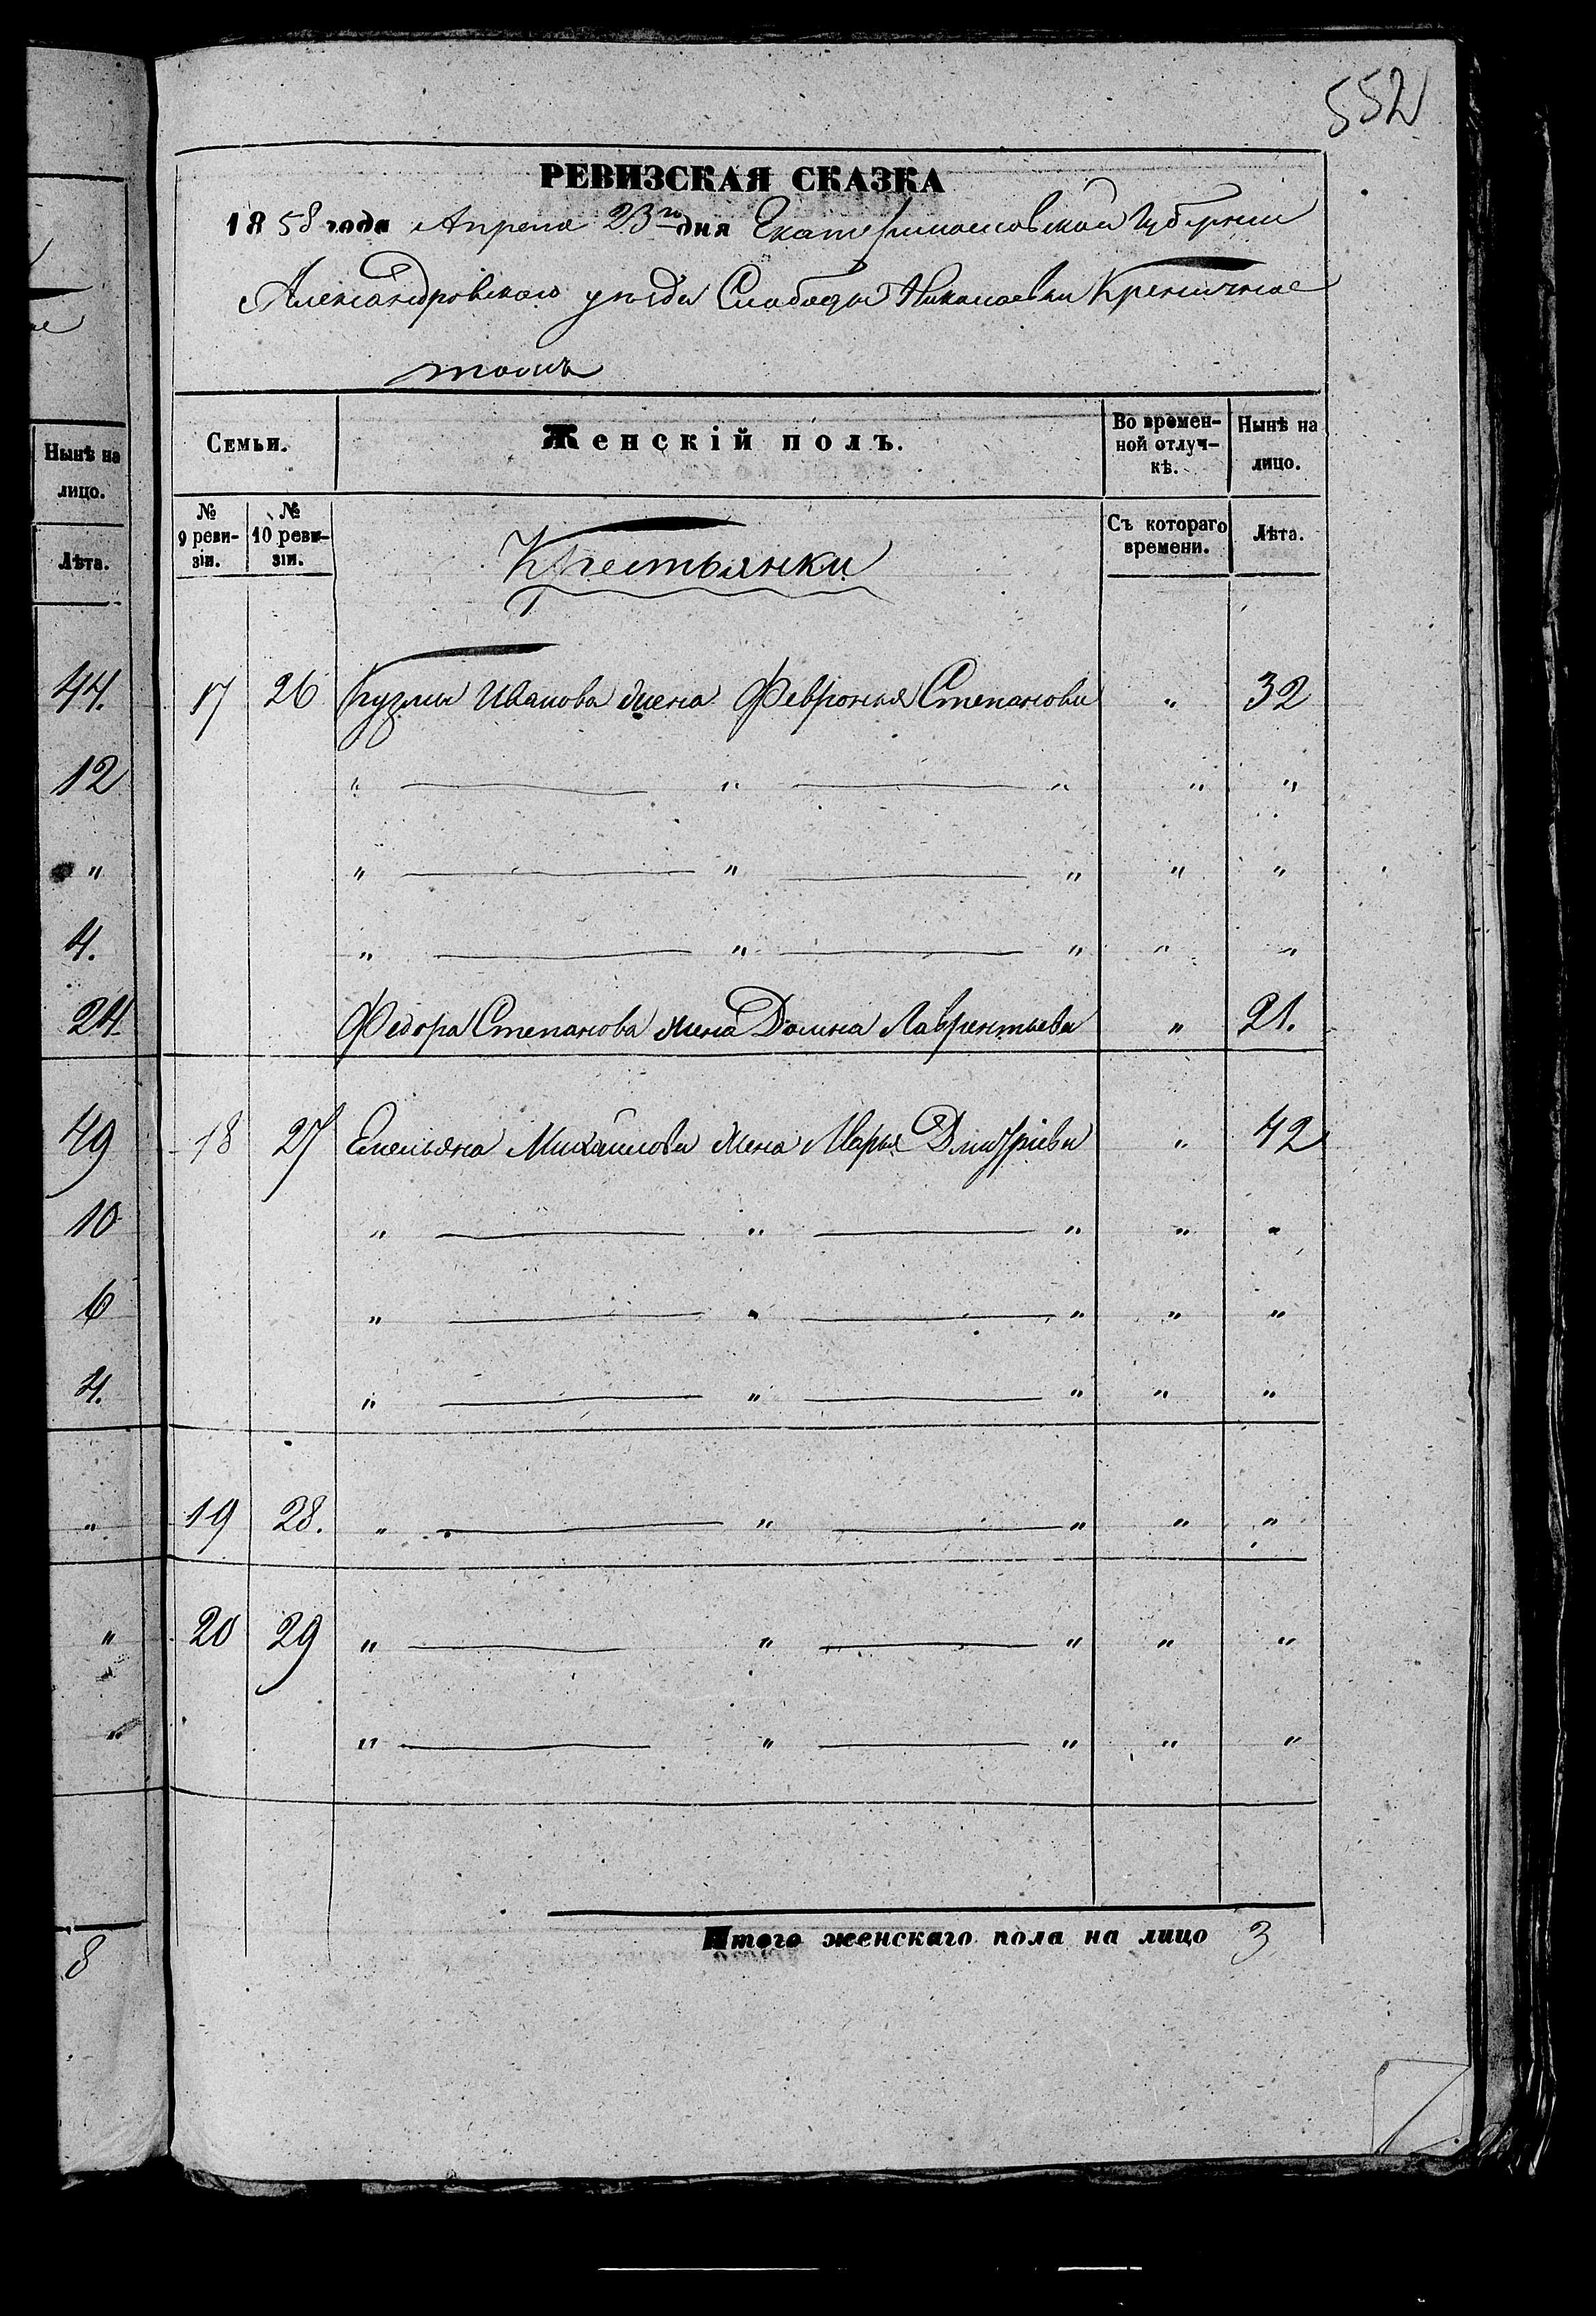 552
РЕВИЗСКАЯ СКАЗКА
1858 года Апреля 23го дня Екатеринославской Губернии
Александровского уезда Слободы Николаевки Кременчиное
тожъ
Нынѣ на
лицо.
Лѣта.
44.
12
"
4.
24
49
10
6
4.
"
"
"
8
Семьи.
Женскій полъ.
Во времен-
ной отлуч-
кѣ.
Нынѣ на
лицо.
№
9 реви-
зіи.
№
10 реви-
зіи.
Крестьянки
Съ котораго
времени.
Лѣта.
17 26 Кузмы Иванова жена Февронья Степанова " 32
" " " " "
" " " " "
" " " " "
Федора Степанова жена Домна Лаврентьева " 21.
18 27 Емельяна Михайлова жена Марья Дмитріева " 42
" " " " "
" " " " "
" " " " "
19 28. " " " " "
20 29 " " " " "
" " " " "
Итого женскаго пола на лицо 3